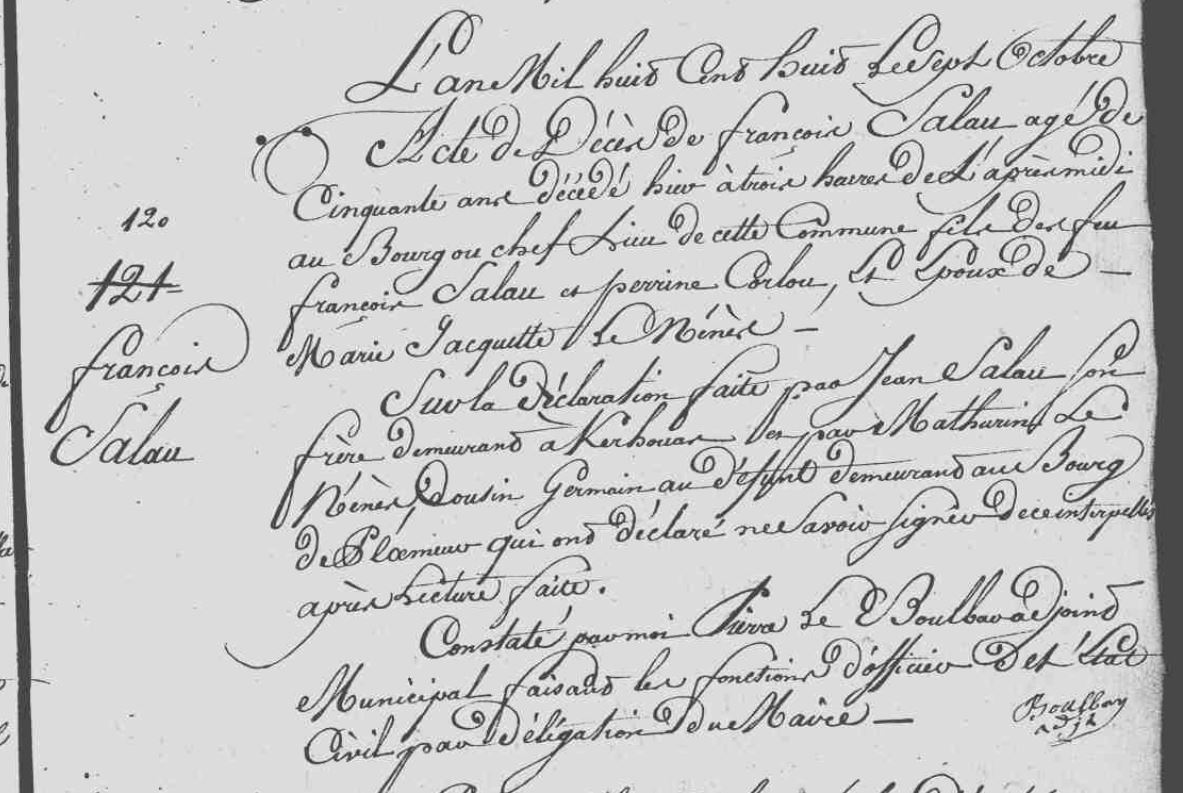 L'an Mil huit Cent huit Le Sept Octobre
Acte de Décès de françois Salau agé de
Cinquante ans décédé hier à trois heures de L'après midi
au Bourg ou chef Lieu de cette Commune fils des feu
françois Salau et perrine Corlou, Et Epoux de —
Marie Jacquette Le Nénès —
Sur la Déclaration faite par Jean Salau son
frère demeurant à Kerhouas et par Mathurin Le
Nénès, Cousin Germain au défunt demeurant au Bourg
de Ploemeur qui ont déclaré ne Savoir signer de ce interpellés
après Lecture faite.
Constaté par moi Pierre Le Boulbar adjoint
Municipal faisant les fonctions d'officier de L'Etat
Civil par délégation du Maire —
Boulbar
adjt
120
121
françois
Salau